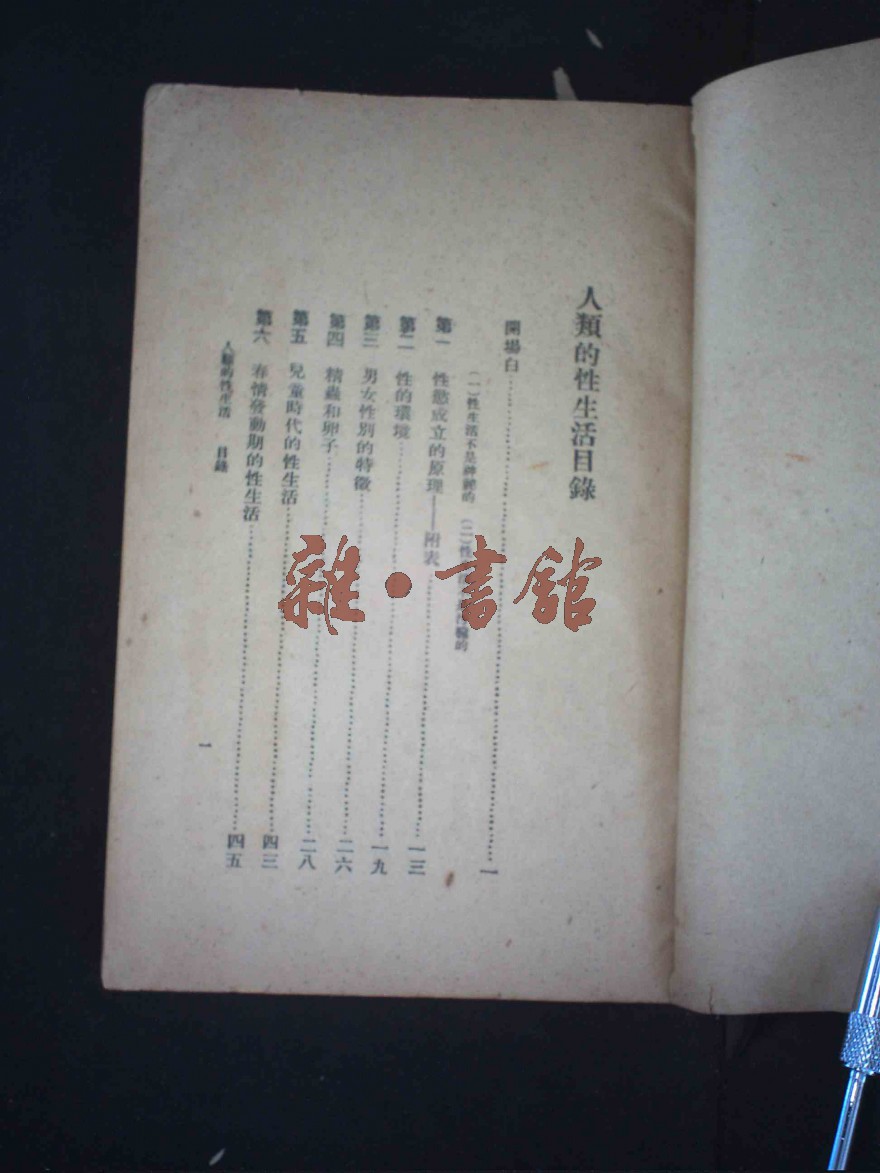 人類的性生活目錄
開場白……一
(一)性生活不是神祕的 (二)性
第一 性慾成立的原理——附表……一三
第二 性的環境……一九
第三 男女性別的特徵……二六
第四 精蟲和卵子……二八
第五 兒童時代的性生活……四三
第六 春情發動期的性生活……四五
人類的性生活 目錄
一
雜·書館